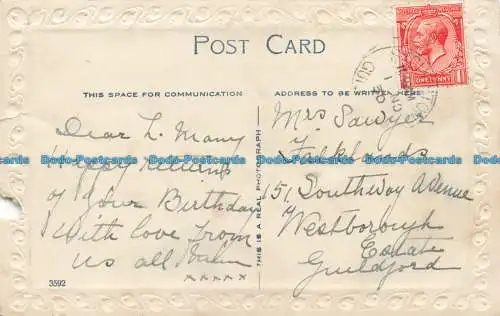 POST CARD
THIS SPACE FOR COMMUNICATION
ADDRESS TO BE WRITTEN HERE
Dear L. Many
Happy Returns
of your Birthday
With love from
us all
x x x x x
3592
THIS IS A REAL PHOTOGRAPH
Mrs Sawyer
51 Southway Avenue
Westborough
Estate
Guildford
ONE PENNY
Dodo-Postcards Dodo-Postcards Dodo-Postcards Dodo-Postcards